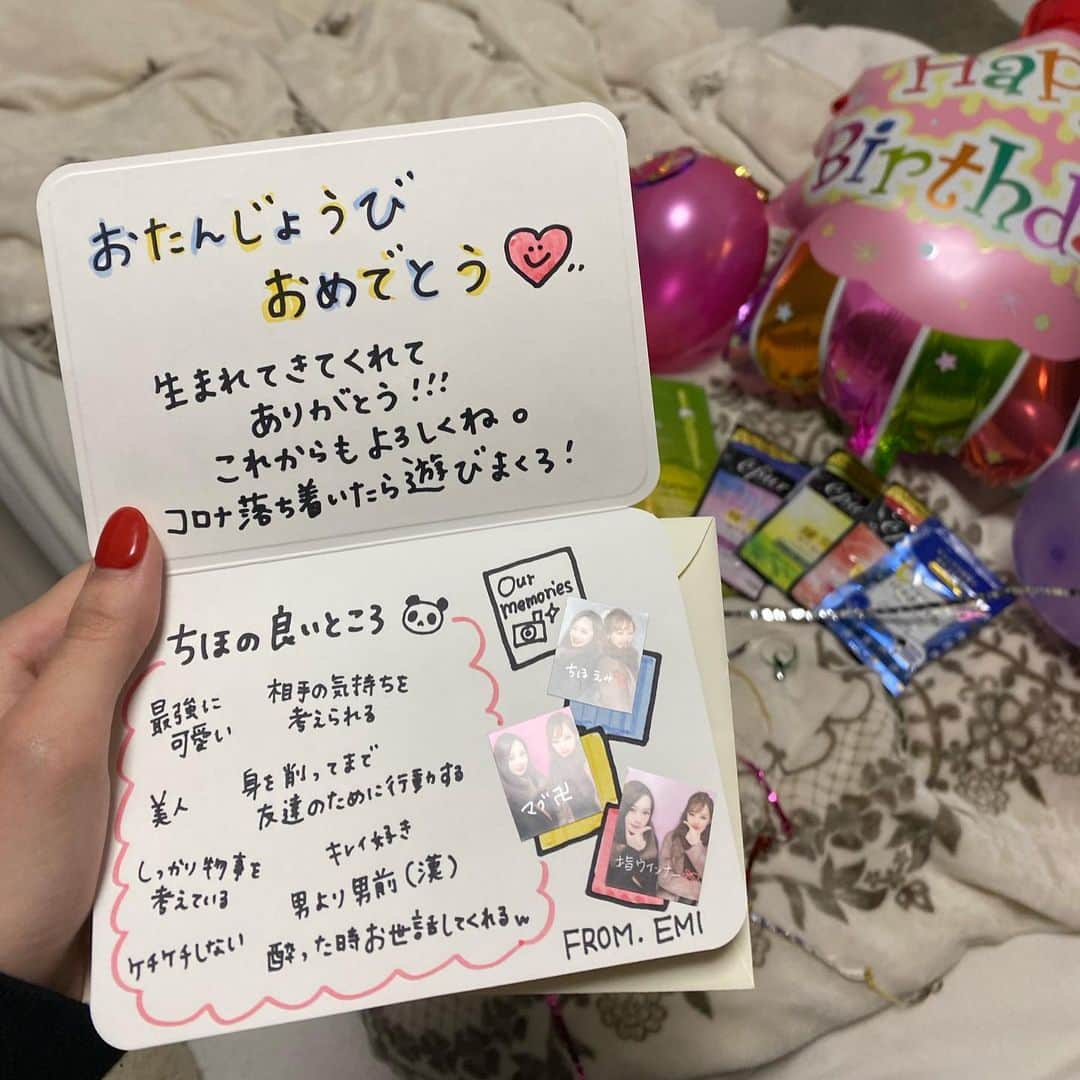 おたんじょうび
おめでとう
生まれてきてくれて
ありがとう!!!
これからもよろしくね。
コロナ落ち着いたら遊びまくろ!
ちほの良いところ
最強に
可愛い
相手の気持ちを
考えられる
美人
身を削ってまで
友達のために行動する
しっかり物事を
考えている
キレイ好き
男より男前(漢)
ケチケチしない
酔った時お世話してくれるw
Our
memories
ちほ えみ
マブ卍
指ウインナー
FROM. EMI
Happ
Birthd